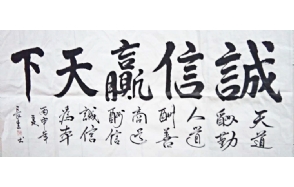 誠信贏天下
天道
酬勤
人道
酬善
商道
酬信
誠信
為本
丙申年
夏